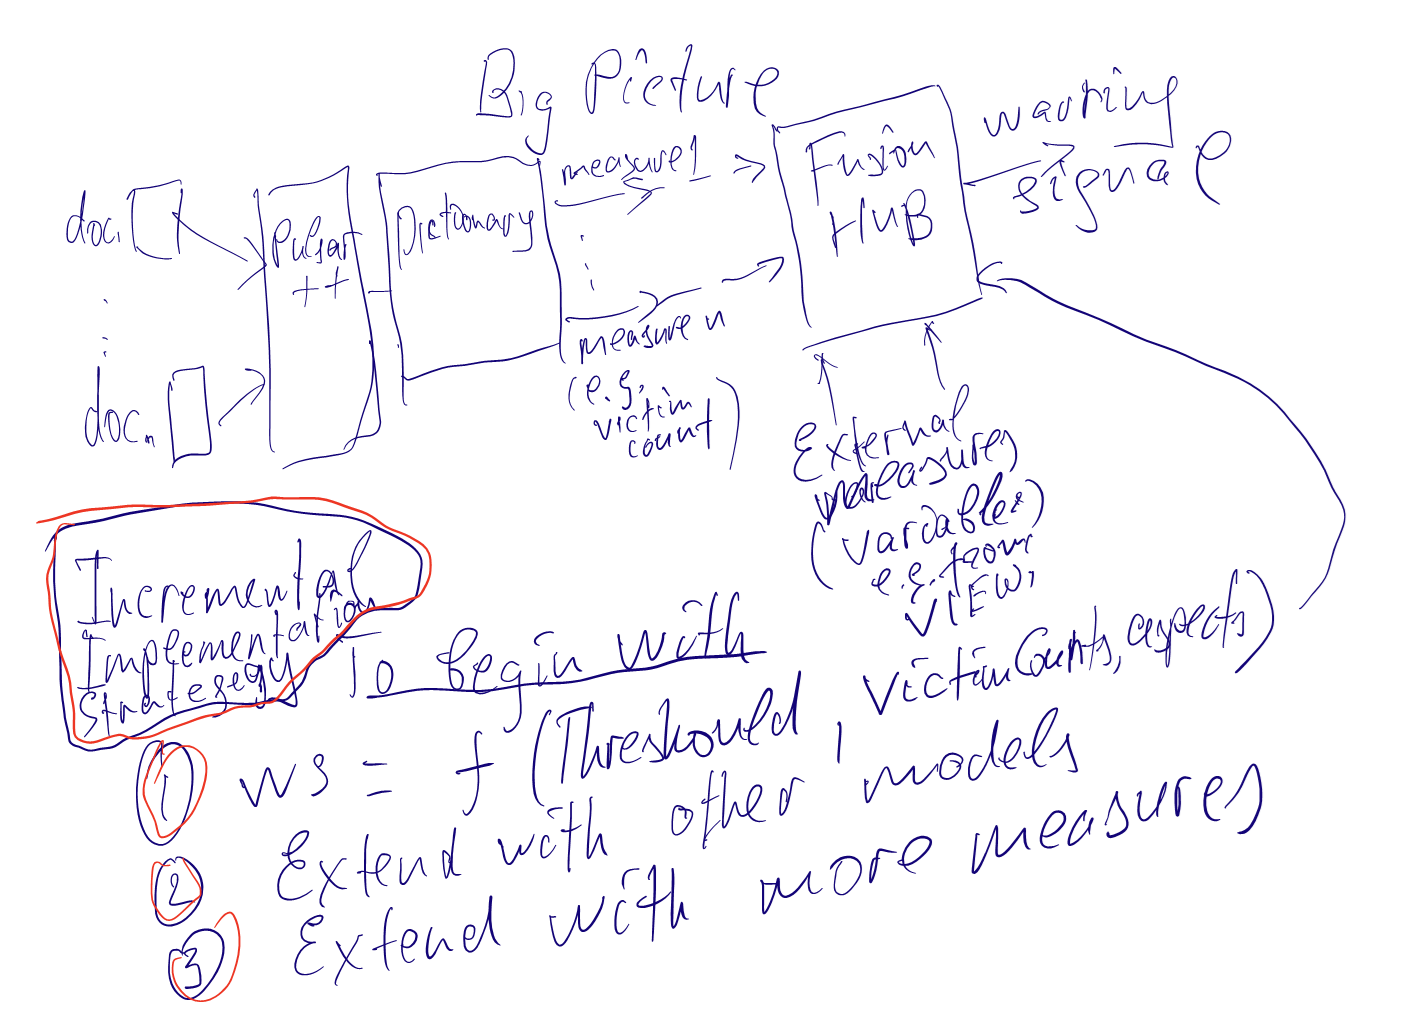 Big Picture
doc1
doc.n
Pulsar
++
Dictionary
measure1
measure n
(e.g.
victim
count)
Fusion
HUB
warning
signal
External
measures
(variables)
e.g. from
VIEWs
Incremental
Implementation
Strategegy
To begin with
1 ws = f (Threshould, victimCounts, aspects)
2 Extend with other models
3 Extend with more measures